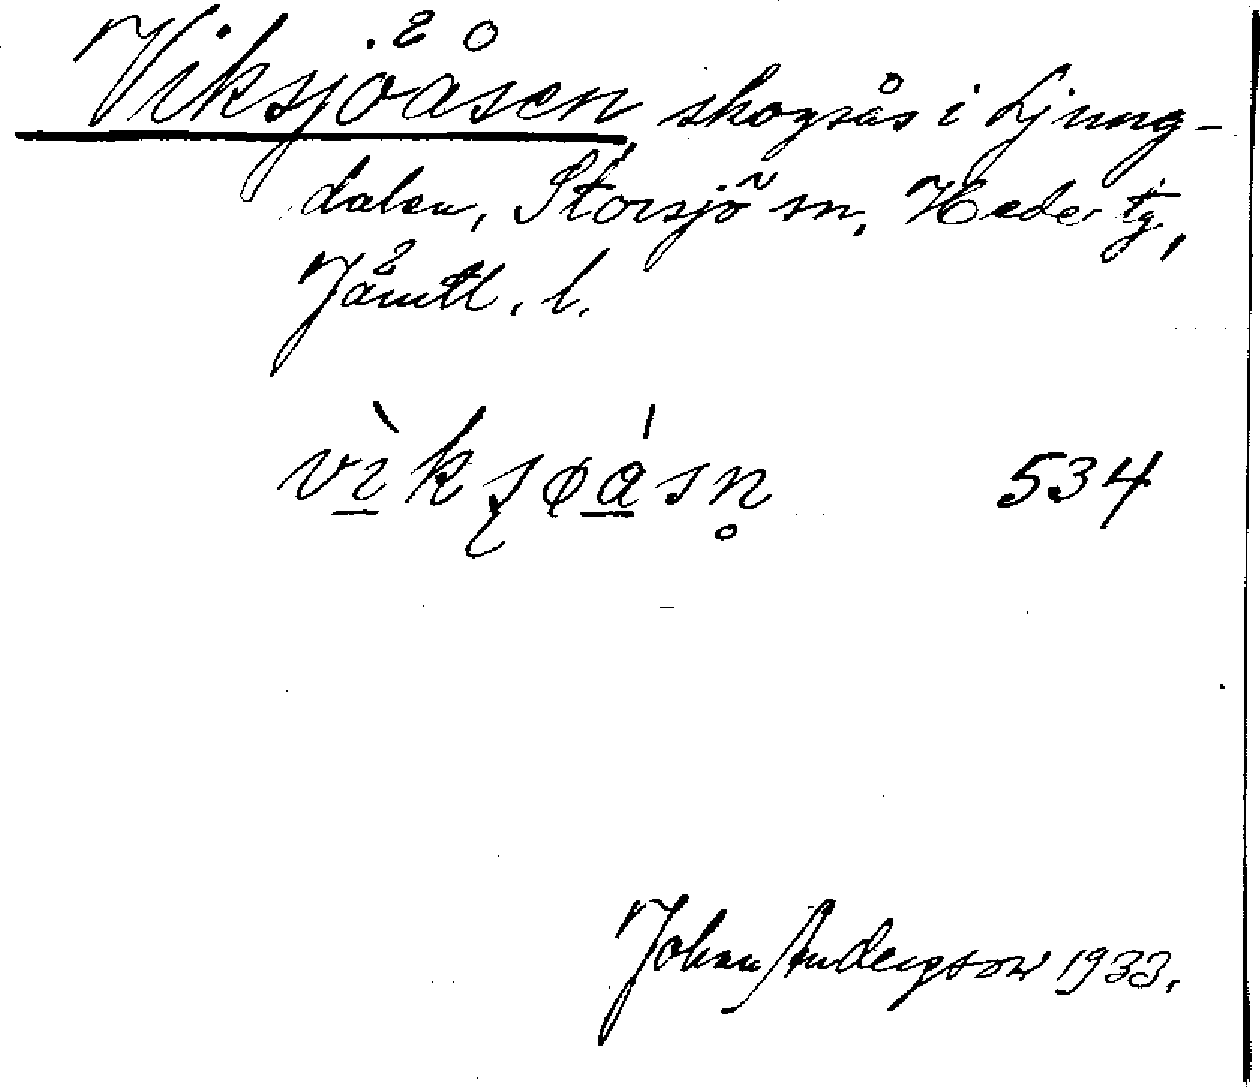 Viksjöåsen, skogsås i Ljung-
dalen, Storsjö sn, Hede tg,
Jämtl. l.
vìksjøåsn̥ 534
Johan Anderzson 1933.